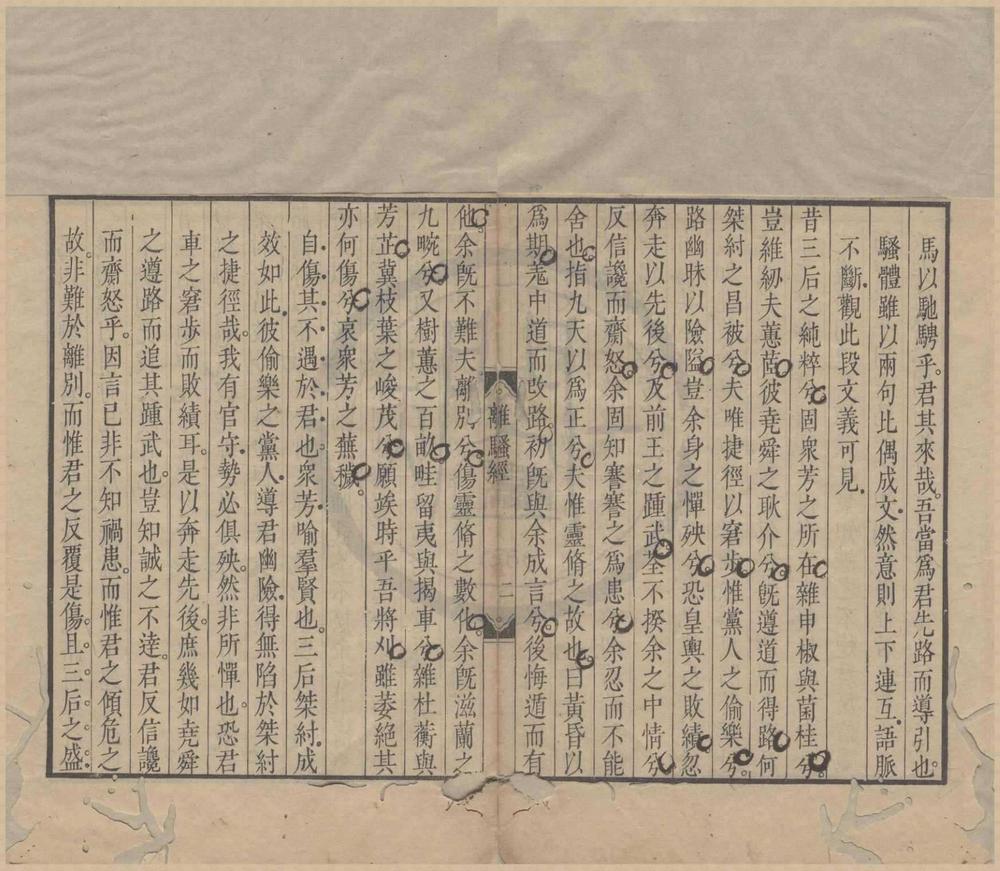 馬以馳騁乎。君其來哉。吾當爲君先路而導引也。
騷體雖以兩句比偶成文。然意則上下連互。語脈
不斷。觀此段文義可見。
昔三后之純粹兮。固衆芳之所在。雜申椒與菌桂兮。
豈維紉夫蕙茝。彼堯舜之耿介兮。旣遵道而得路。何
桀紂之昌被兮。夫唯捷徑以窘步。惟黨人之偷樂兮。
路幽昧以險隘。豈余身之憚殃兮。恐皇輿之敗績。忽
奔走以先後兮。及前王之踵武。荃不揆余之中情兮。
反信讒而齌怒。余固知謇謇之爲患兮。余忍而不能
舍也。指九天以爲正兮。夫惟靈脩之故也。曰黃昏以
爲期。羗中道而改路。初旣與余成言兮。後悔遁而有
離騷經
二
他。余旣不難夫離別兮。傷靈脩之數化。余旣滋蘭之
九畹兮。又樹蕙之百畝。畦留夷與揭車兮。雜杜蘅與
芳芷。冀枝葉之峻茂兮。願竢時乎吾將刈。雖萎絕其
亦何傷兮。哀衆芳之蕪穢。
自傷其不遇於君也。衆芳喻羣賢也。三后桀紂成
效如此。彼偷樂之黨人。導君幽險。得無陷於桀紂
之捷徑哉。我有官守。勢必俱殃。然非所憚也。恐君
車之窘步而敗績耳。是以奔走先後。庶幾如堯舜
之遵路而追其踵武也。豈知誠之不達。君反信讒
而齌怒乎。因言已非不知禍患。而惟君之傾危之
故。非難於離別。而惟君之反覆是傷。且三后之盛